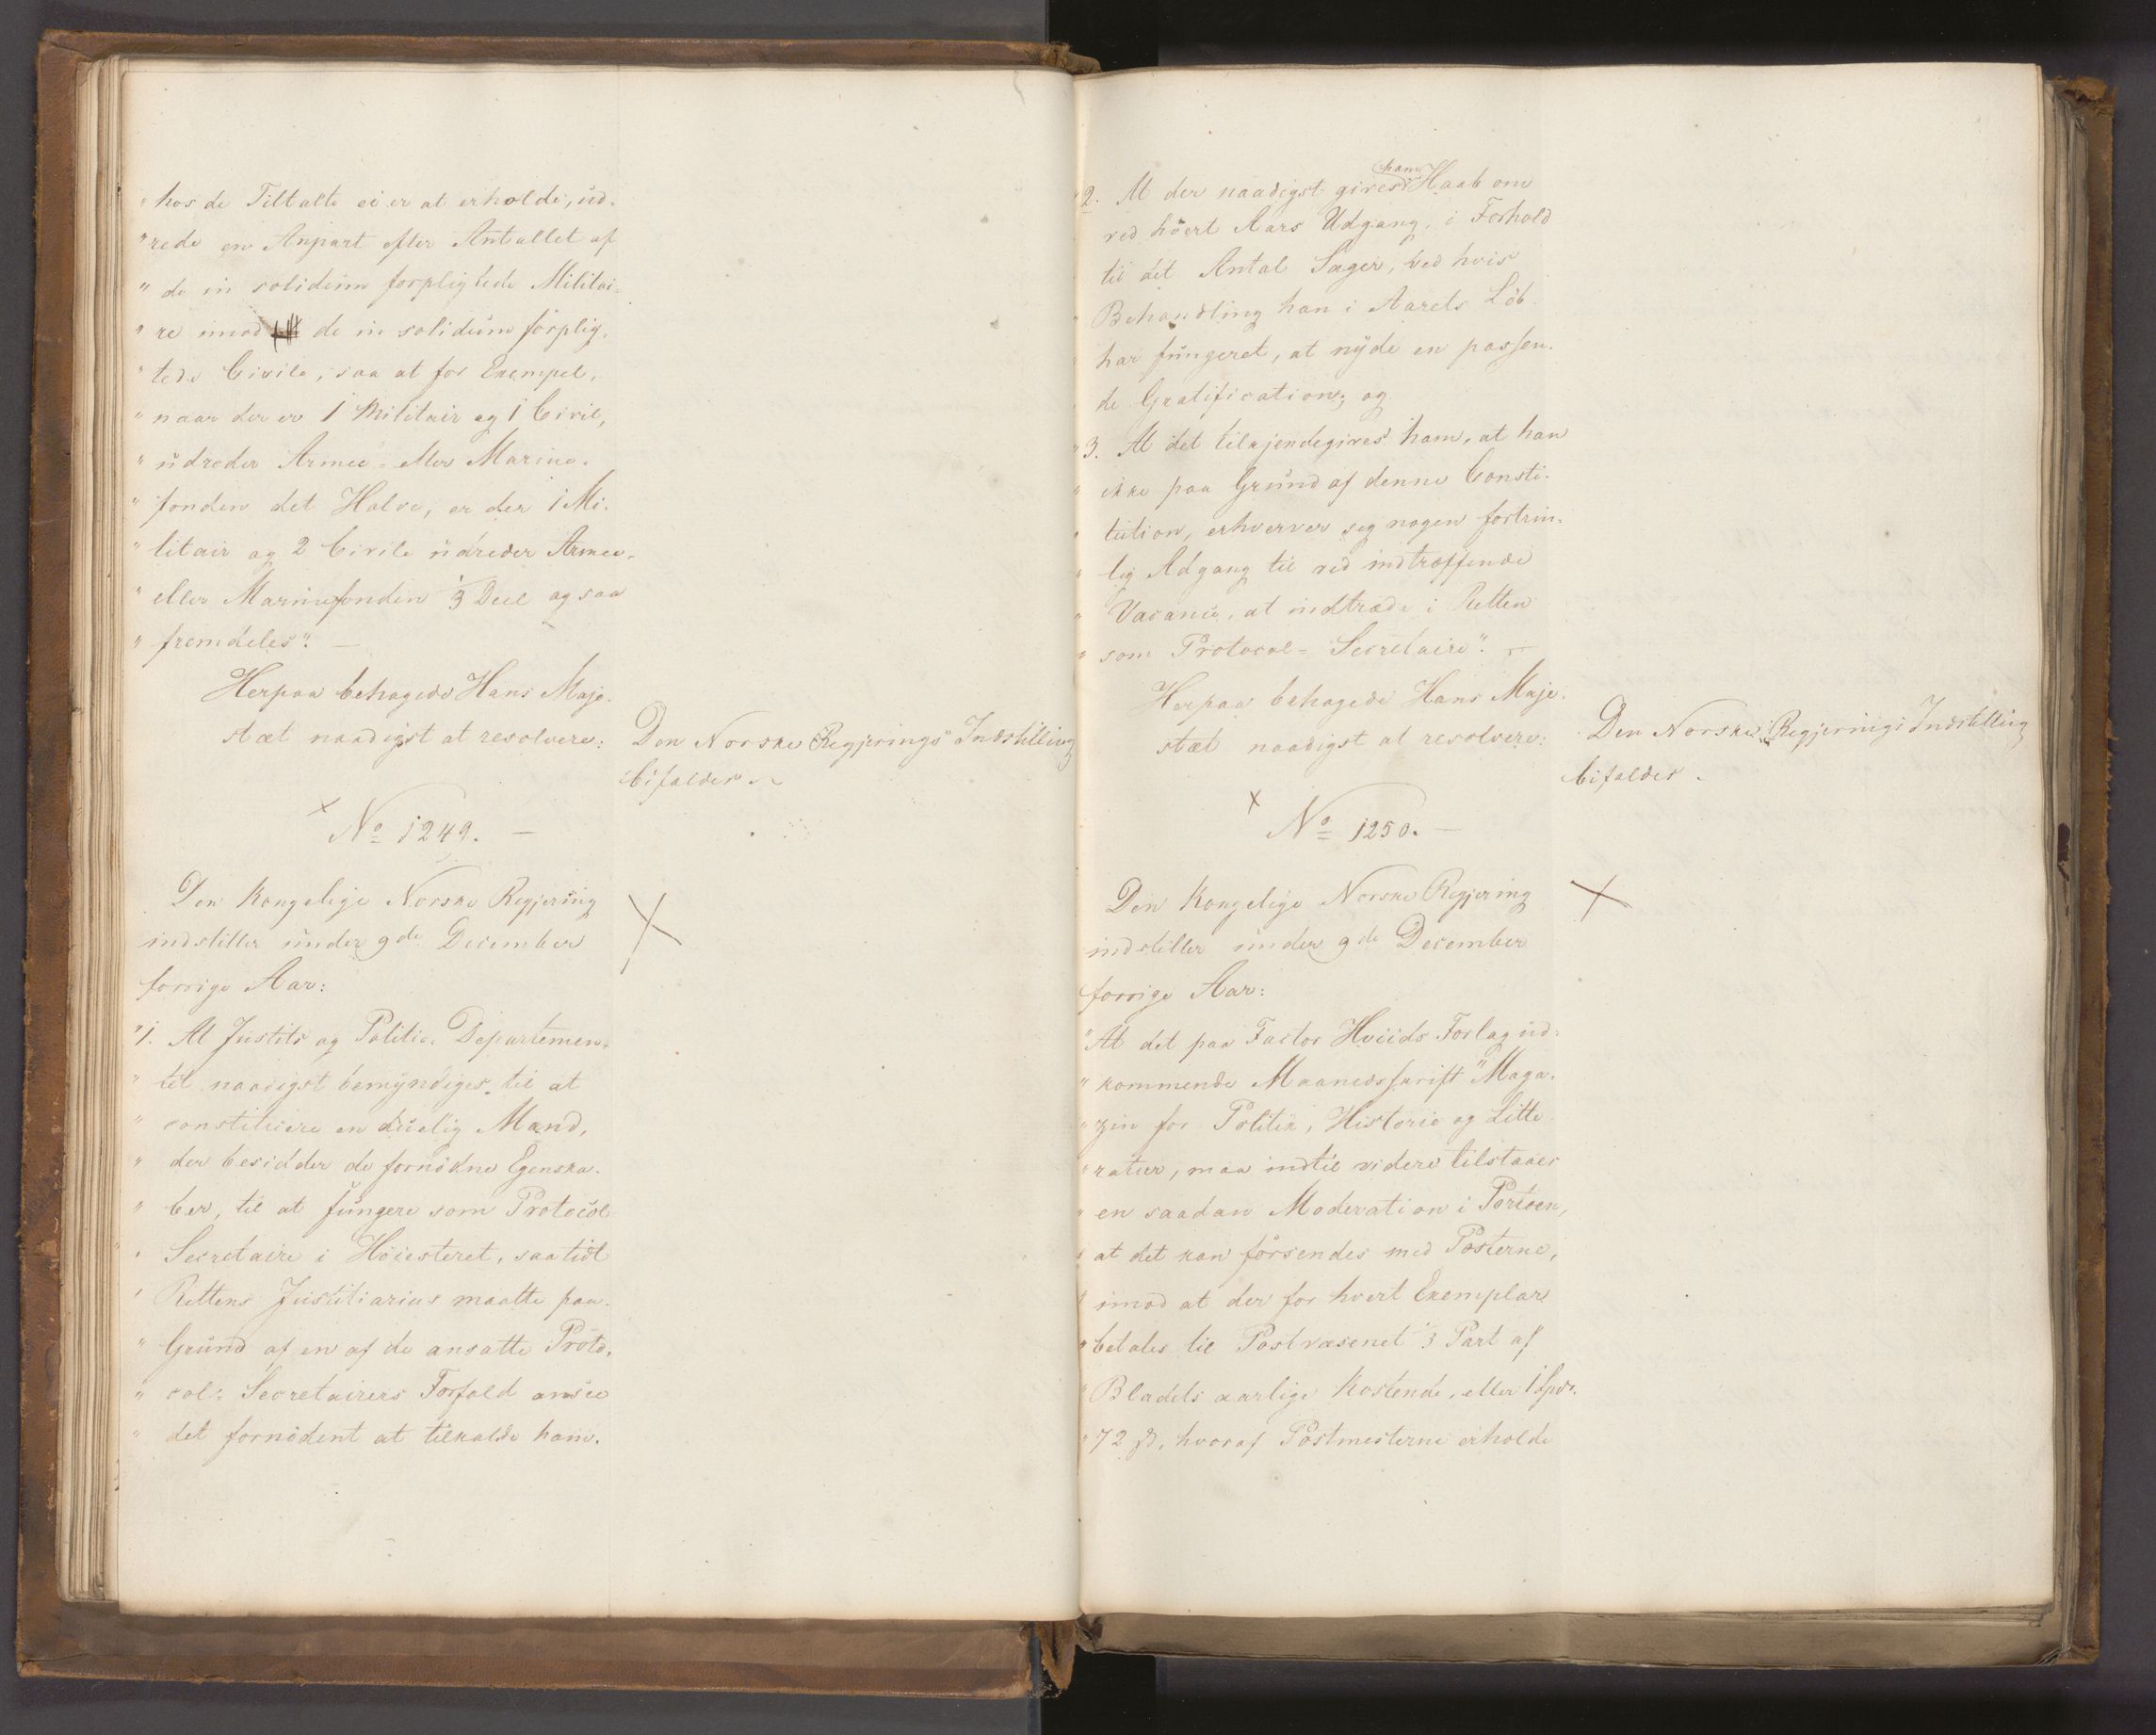 " hos de Tiltalte ei er at erholde, ud-
" rede en Anpart efter Antallet af
" de in solidum forpligtede Militai=
" re imod de in solidum forplig-
" tede Civile, saa at for Exempel,
" naar der er 1 Militair og 1 Civil,
" udreder Armee- eller Marine-
" fonden det Halve, er der 1 Mi-
" litair og 2 Civile udreder Armee-
" eller Marinefonden 1/3 Deel og saa
" fremdeles". —
Herpaa behagede Hans Maje-
stæt naadigst at resolvere:
Den Norske Regjerings Indstilling
bifaldes.
× No 1249. —
Den Kongelige Norske Regjering
indstiller under 9de December
forrige Aar:
×
"1. At Justits og Politie-Departemen-
" tet naadigst bemyndiges til at
" constituere en duelig Mand,
" der besidder de fornødne Egenska-
" ber, til at fungere som Protocol-
" Secretaire i Høiesteret, saatidt
" Rettens Justitiarius maatte paa
" Grund af en af de ansatte Proto-
" col-Secretairers Forfald ansee
" det fornødent at tilkalde ham.
"2. At der naadigst gives ham Haab om
" ved hvert Aars Udgang, i Forhold
" til det Antal Sager, ved hvis
" Behandling han i Aarets Løb
" har fungeret, at nyde en passen-
" de Gratification; og
"3. At det tilkjendegives ham, at han
" ikke paa Grund af denne Consti-
" tution, erhverver sig nogen fortrin-
" lig Adgang til ved indtræffende
" Vacance, at indtræde i Retten
" som Protocol-Secretaire". —
Herpaa behagede Hans Maje-
stæt naadigst at resolvere:
Den Norske Regjerings Indstilling
bifaldes.
× No 1250. —
Den Kongelige Norske Regjering
indstiller under 9de December
forrige Aar:
×
"At det paa Factor Hviids Forlag ud-
" kommende Maanedsskrift "Maga-
" zin for Politik, Historie og Litte-
" ratur, maa indtil videre tilstaaes
" en saadan Moderation i Portoen,
" at det kan forsendes med Posterne,
" imod at der for hvert Exemplar
" betales til Postvæsenet 1/3 Part af
" Bladets aarlige Kostende, eller 1 Spd.
" 72 ß, hvoraf Postmesterne erholde